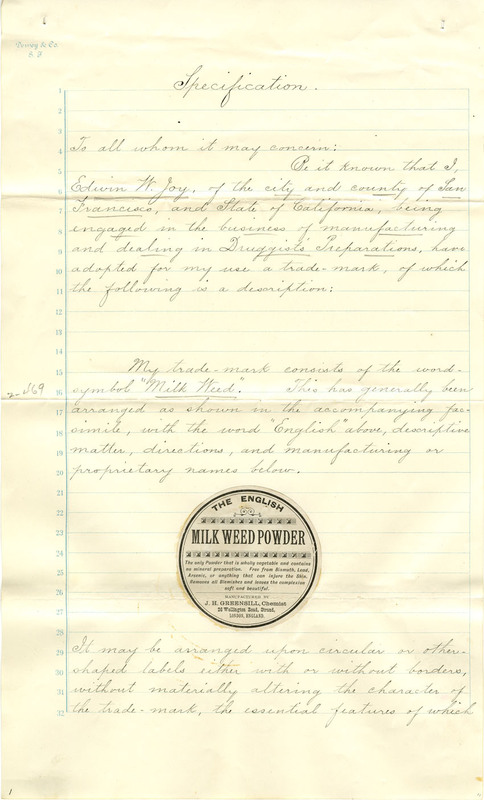 Dewey & Co.
S. F.
Specification.
1
2
3
4 To all whom it may concern:
5 Be it known that I,
6 Edwin W. Joy, of the city and county of San
7 Francisco, and State of California, being
8 engaged in the business of manufacturing
9 and dealing in Druggists' Preparations, have
10 adopted for my use a trade-mark, of which
11 the following is a description:
12
13
14
15 My trade-mark consists of the word-
16 symbol "Milk Weed". This has generally been
17 arranged as shown in the accompanying fac-
18 simile, with the word "English" above, descriptive
19 matter, directions, and manufacturing or
20 proprietary names below.
21
22
23
24
25
26
27
28
THE ENGLISH
MILK WEED POWDER
The only Powder that is wholly vegetable and contains
no mineral preparation. Free from Bismuth, Lead,
Arsenic, or anything that can injure the Skin.
Removes all Blemishes and leaves the complexion
soft and beautiful.
MANUFACTURED BY
J. H. GREENSILL, Chemist
26 Wellington Road, Strand,
LONDON, ENGLAND.
29 It may be arranged upon circular or other-
30 shaped labels either with or without borders,
31 without materially altering the character of
32 the trade-mark, the essential features of which
1